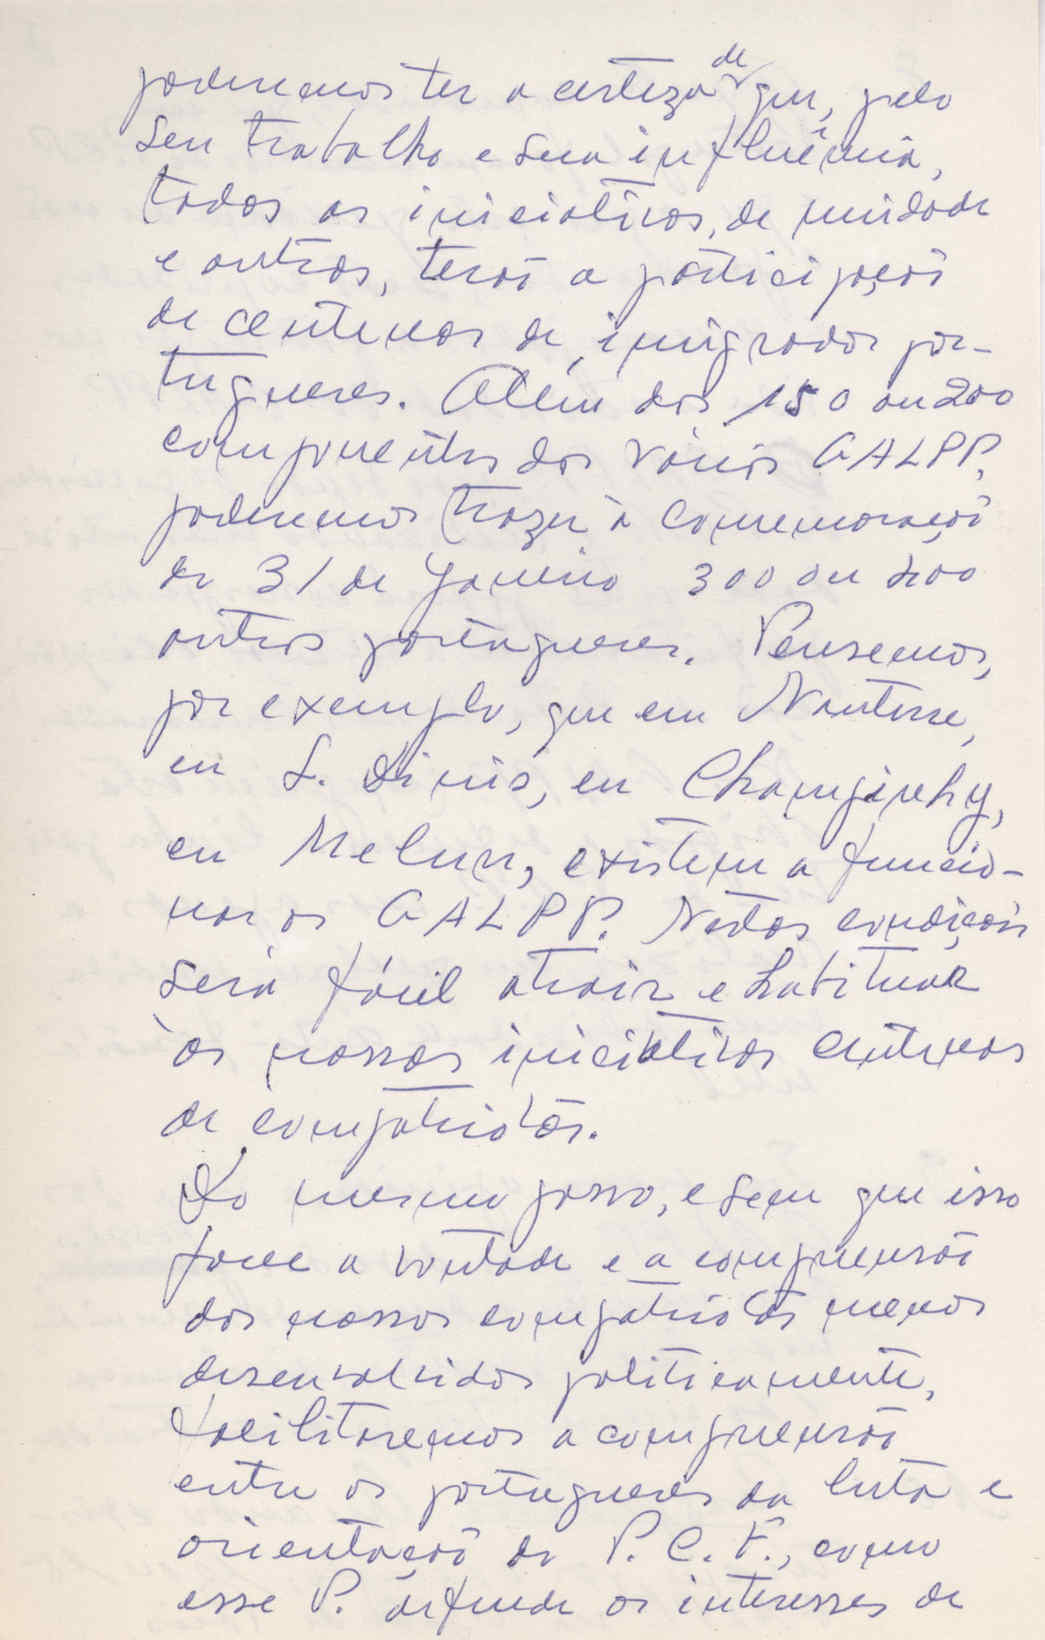 poderemos ter a certeza de que, pelo
seu trabalho e sua influência,
todas as iniciativas, de unidade
e outras, terão a participação
de centenas de imigrados por-
tugueses. Além dos 150 ou 200
componentes dos vários GALPP,
poderemos trazer à comemoração
do 31 de Janeiro 300 ou 400
outros portugueses. Pensemos,
por exemplo, que em Nanterre,
em S. Dinis, em Champinhy,
em Melun, existem a funcio-
nar os GALPP. Nestas condições
será fácil atrair e habituar
às nossas iniciativas centenas
de compatriotas.
Do mesmo passo, e sem que isso
force a vontade e a compreensão
dos nossos compatriotas menos
desenvolvidos politicamente,
facilitaremos a compreensão
entre os portugueses da luta e
orientação do P.C.F., como
esse P. defende os interesses de